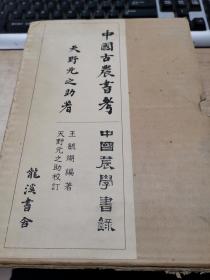 中國古農書考
天野元之助著
中國農學書錄
王毓瑚編著
天野元之助校訂
龍溪書舍